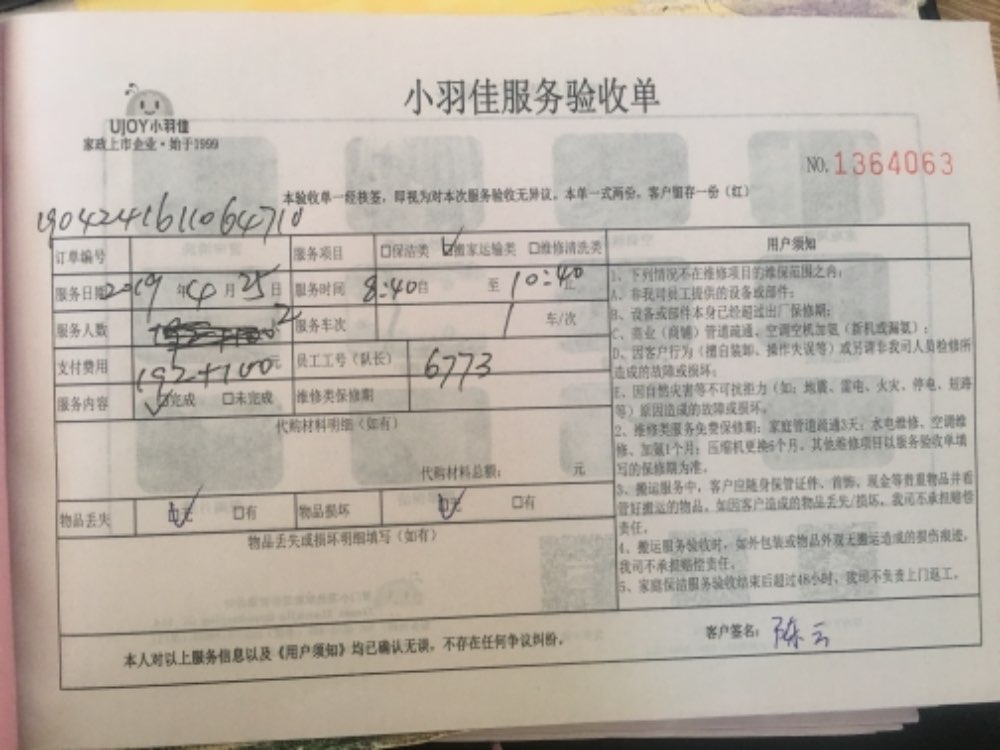 小羽佳服务验收单
UJOY小羽佳
家政上市企业·始于1999
NO.1364063
本验收单一经核签，即视为对本次服务验收无异议。本单一式两份，客户留存一份（红）
1904241611064710
订单编号 服务项目 □保洁类 ☑搬家运输类 □维修清洗类
服务日期 2019 年 4 月 25 日 服务时间 8:40 自 至 10:40 止
服务人数 2 服务车次 1 车/次
支付费用 192+100 元 员工工号（队长） 6773
服务内容 ☑完成 □未完成 维修类保修期
代购材料明细（如有）
代购材料总额： 元
物品丢失 ☑无 □有 物品损坏 ☑无 □有
物品丢失或损坏明细填写（如有）
用户须知
1、下列情况不在维修项目的维保范围之内：
A、非我司员工提供的设备或部件；
B、设备或部件本身已经超过出厂保修期；
C、商业（商铺）管道疏通、空调空机加氨（新机或漏氨）；
D、因客户行为（擅自装卸、操作失误等）或另请非我司人员检修所
造成的故障或损坏；
E、因自然灾害等不可抗拒力（如：地震、雷电、火灾、停电、短路
等）原因造成的故障或损坏。
2、维修类服务免费保修期：家庭管道疏通3天；水电维修、空调维
修、加氨1个月；压缩机更换6个月。其他维修项目以服务验收单填
写的保修期为准。
3、搬运服务中，客户应随身保管证件、首饰、现金等贵重物品并看
管好搬运的物品。如因客户造成的物品丢失/损坏，我司不承担赔偿
责任。
4、搬运服务验收时，如外包装或物品外观无搬运造成的损伤痕迹，
我司不承担赔偿责任。
5、家庭保洁服务验收结束后超过48小时，我司不负责上门返工。
本人对以上服务信息以及《用户须知》均已确认无误，不存在任何争议纠纷。 客户签名： 陈云